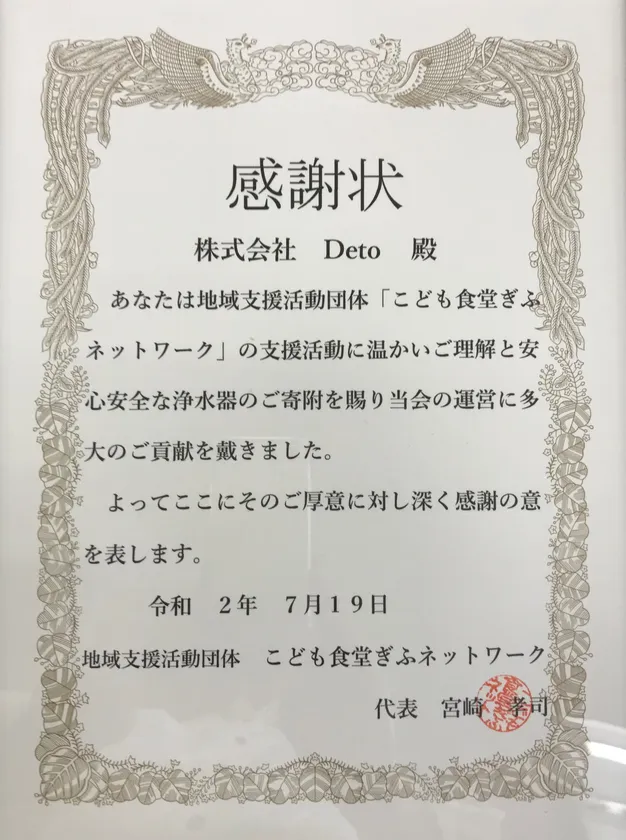 感謝状
株式会社　Deto　殿
あなたは地域支援活動団体「こども食堂ぎふ
ネットワーク」の支援活動に温かいご理解と安
心安全な浄水器のご寄附を賜り当会の運営に多
大のご貢献を戴きました。
よってここにそのご厚意に対し深く感謝の意
を表します。
令和　２年　７月１９日
地域支援活動団体　こども食堂ぎふネットワーク
代表　宮崎　孝司